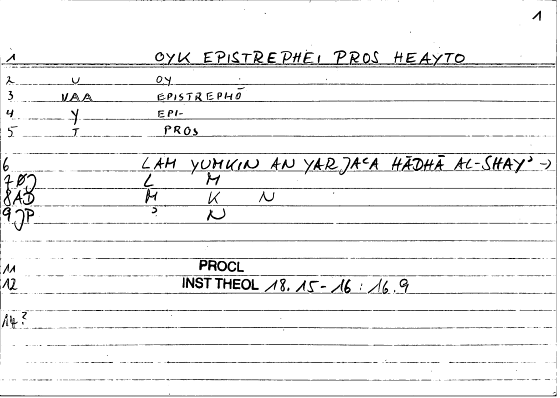 1
1 OYK EPISTREPHEI PROS HEAYTO
2 U OY
3 VAA EPISTREPHŌ
4 Y EPI-
5 T PROS
6 LAM YUMKIN AN YARJAʿA HĀDHĀ AL-SHAYʾ →
7 ØJ L M
8 AD M K N
9 JP ʾ N
11 PROCL
12 INST THEOL 18.15-16 : 16.9
14?